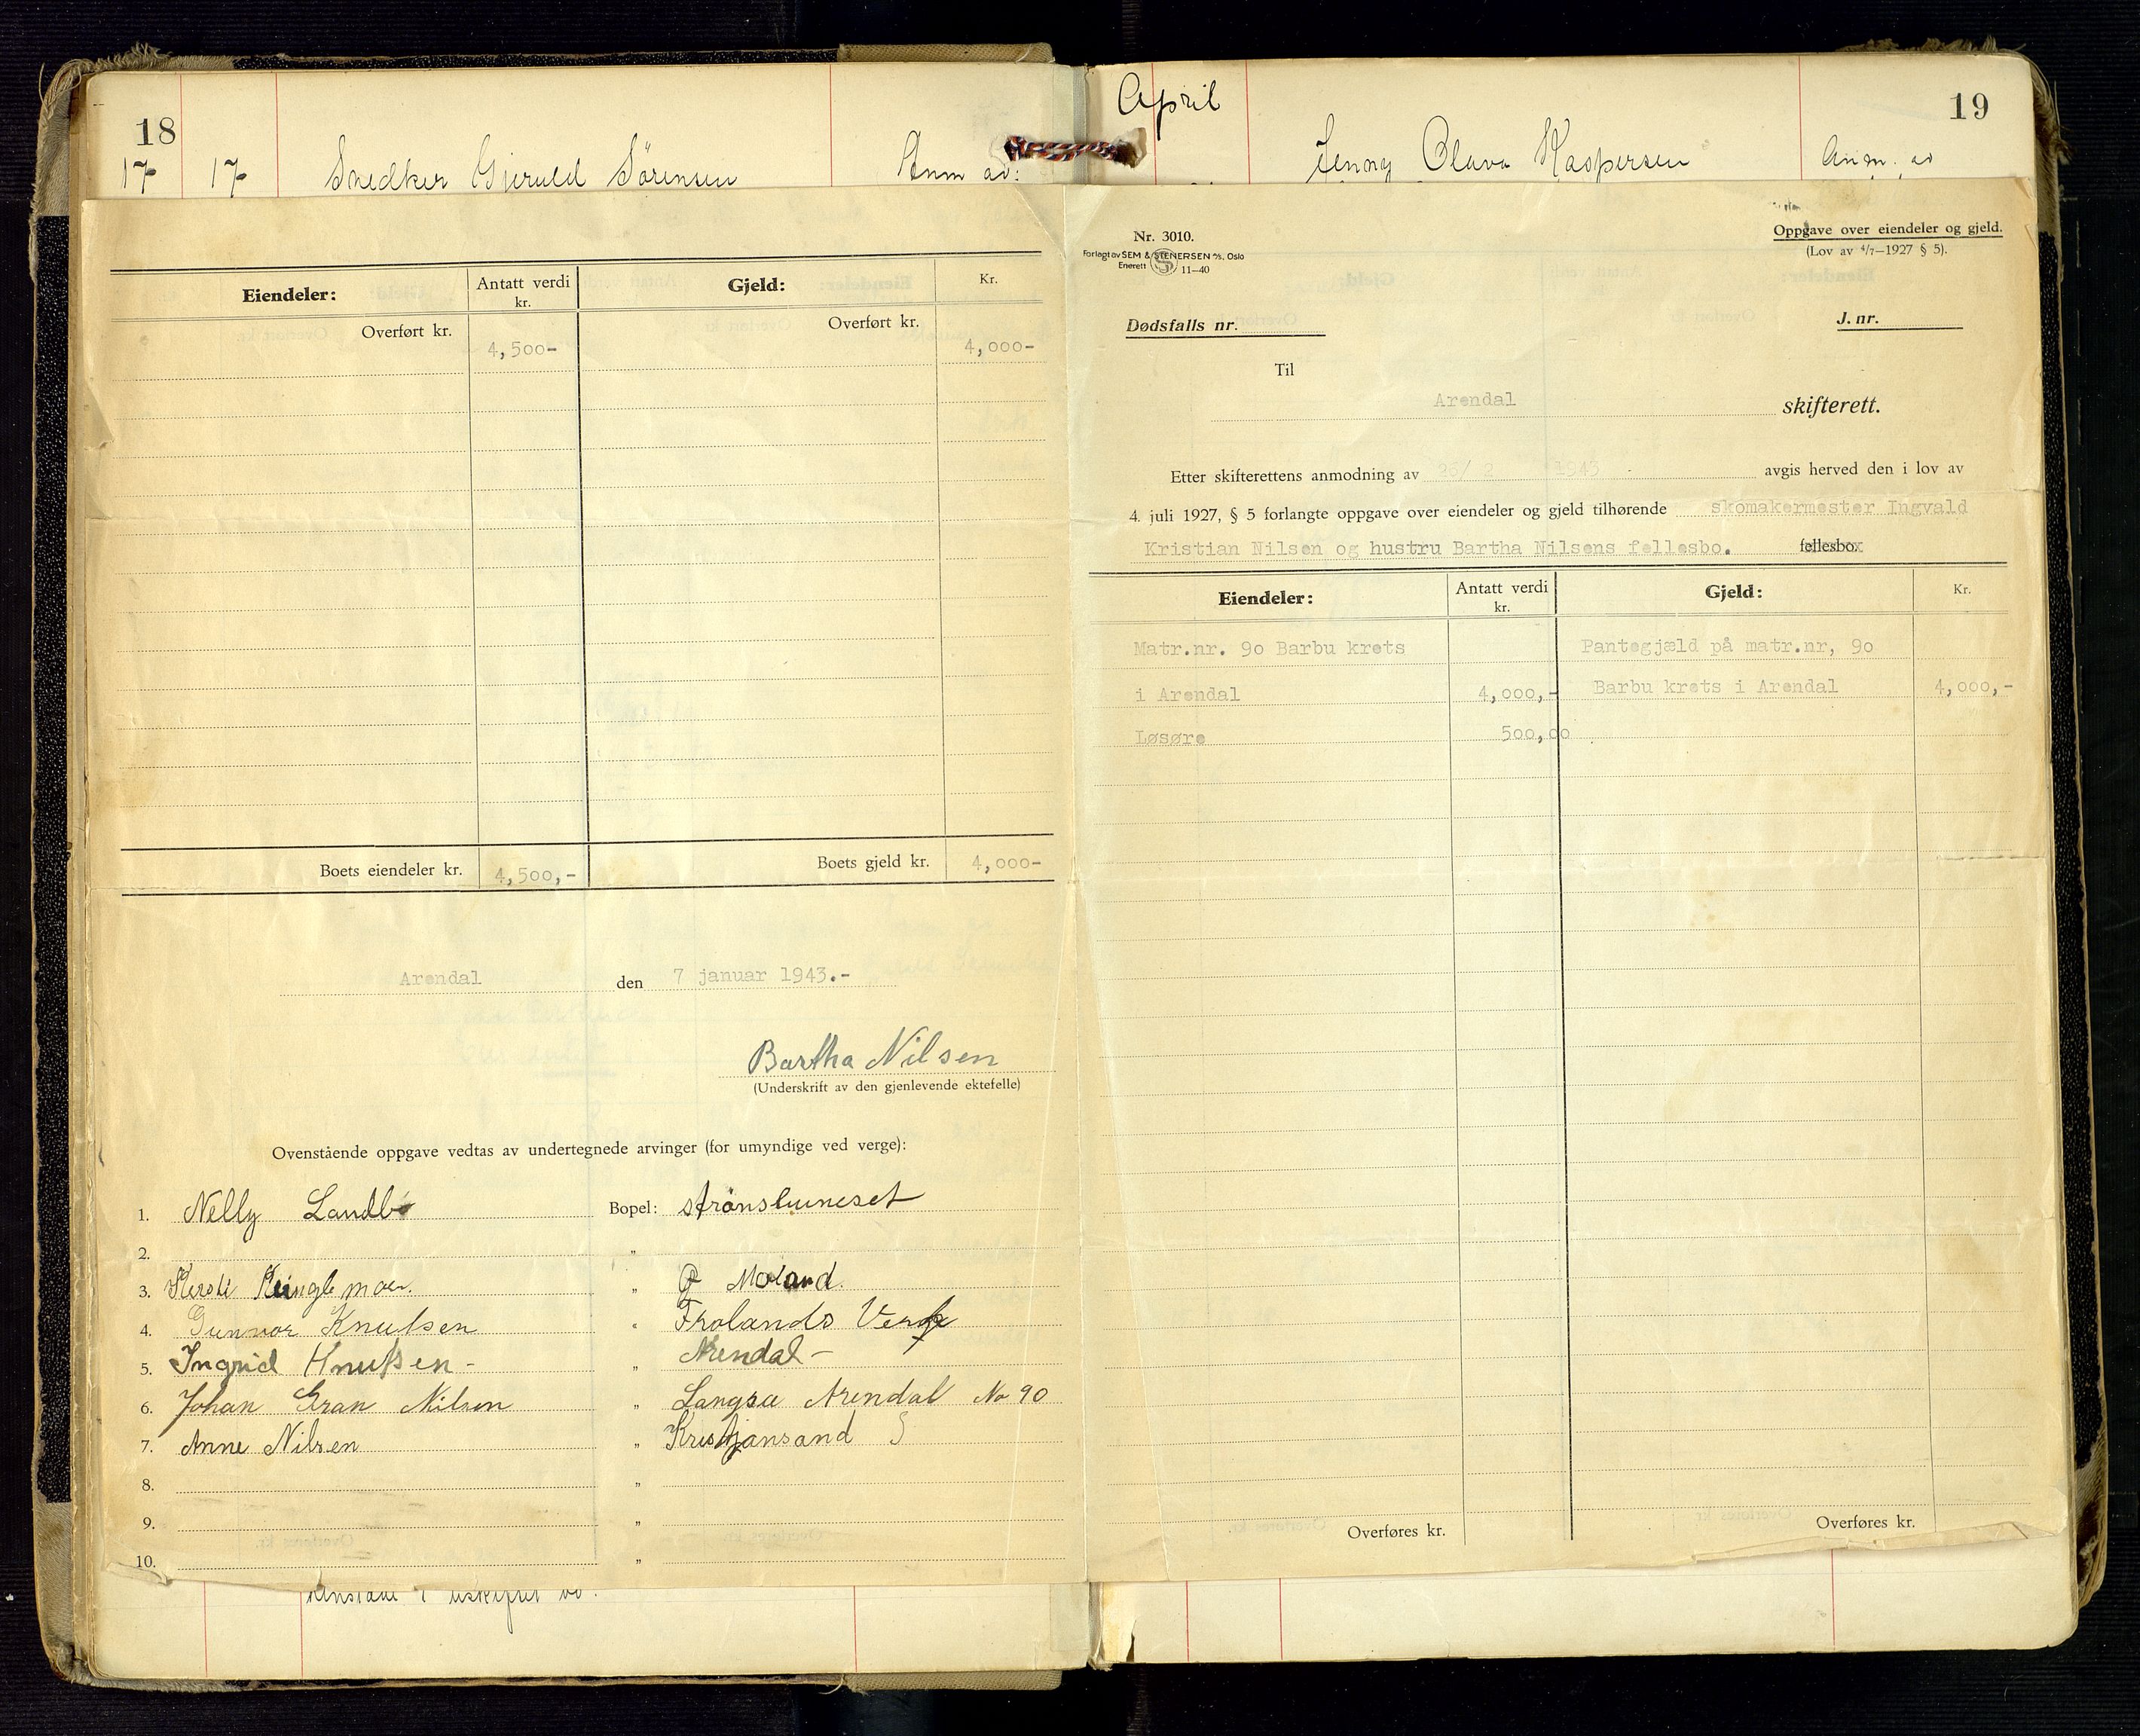 18
17 17 Snedker Gjeruld Sörensen Anm av:
Eiendeler: Antatt verdi kr. Gjeld: Kr.
Overført kr. 4,500- Overført kr. 4,000-
Boets eiendeler kr. 4,500,- Boets gjeld kr. 4,000-
Arendal den 7 januar 1943.-
Bartha Nilsen
(Underskrift av den gjenlevende ektefelle)
Ovenstående oppgave vedtas av undertegnede arvinger (for umyndige ved verge):
1. Nelly Landbø Bopel:
2. „
3. „ Moland.
4. Gunnor Knutsen „ Frolands Verk
5. Ingrid Knutsen - „ Arendal -
6. Johan Gran Nilsen „ Langsæ Arendal No 90
7. Anne Nilsen „ Kristjansand S
8. „
9. „
10. „
i uskiftet bo.
April
19
Jenny Olava Kaspersen Anm. av
Nr. 3010.
Forlagt av SEM & STENERSEN A/S, Oslo
Enerett S 11-40
Oppgave over eiendeler og gjeld.
(Lov av 4/7-1927 § 5).
Dødsfalls nr. J. nr.
Til
Arendal skifterett.
Etter skifterettens anmodning av 26/ 2 1943 - avgis herved den i lov av
4. juli 1927, § 5 forlangte oppgave over eiendeler og gjeld tilhørende skomakermester Ingvald
Kristian Nilsen og hustru Bartha Nilsens fellesbo. fellesbo.
Eiendeler: Antatt verdi kr. Gjeld: Kr.
Matr.nr. 90 Barbu krets Pantegjæld på matr.nr, 90
i Arendal 4,000,- Barbu krets i Arendal 4,000,-
Løsøre 500,00
Overføres kr. Overføres kr.